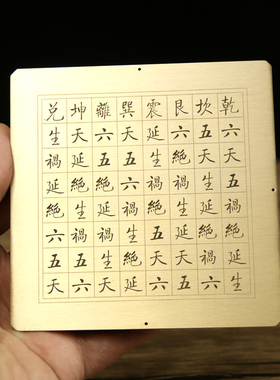 乾六天五禍絕延生
坎五天生延絕禍六
艮六絕禍生延天五
震延生禍絕五天六
巽天五六禍生絕延
離六五絕延禍生天
坤天延絕生禍五六
兌生禍延絕六五天